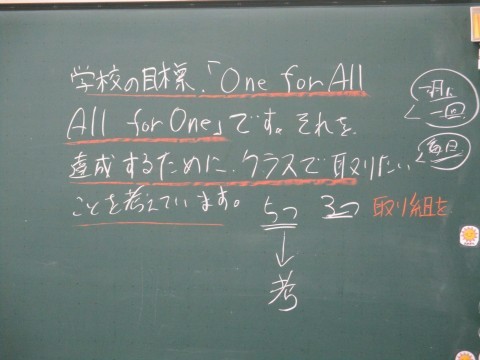 学校の目標、「One for All
All for One」です。それを
達成するために、クラスで取りたい
ことを考えています。
5つ 3つ 取り組を
↓
考
月に
一回
毎日